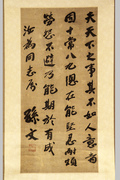 夫天下之事其不如人意者
固十常八九總在能堅忍耐煩
勞怨不避乃能期於有成
汝為同志屬 孫文